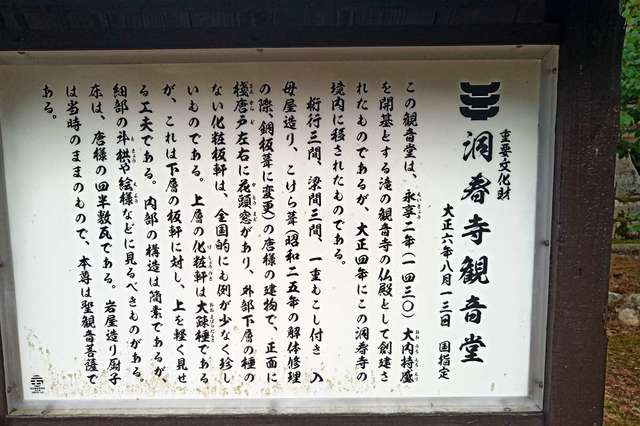 重要文化財
洞春寺観音堂
大正六年八月一三日　国指定
この観音堂は、永享二年（一四三〇）大内持盛
を開基とする滝の観音寺の仏殿として創建さ
れたものであるが、大正四年にこの洞春寺の
境内に移されたものである。
桁行三間、梁間三間、一重もこし付き　入
母屋造り、こけら葺（昭和二五年の解体修理
の際、銅板葺に変更）の唐様の建物で、正面に
桟唐戸左右に花頭窓があり、外部下層の種の
ない化粧板軒は、全国的にも例が少なく珍し
いものである。上層の化粧軒は大疎種である
が、これは下層の板軒に対し、上を軽く見せ
る工夫である。内部の構造は簡素であるが、
細部の斗栱や絵様などに見るべきものがある
床は、唐様の四半敷瓦である。岩屋造り厨子
は当時のままのもので、本尊は聖観音菩薩で
ある。